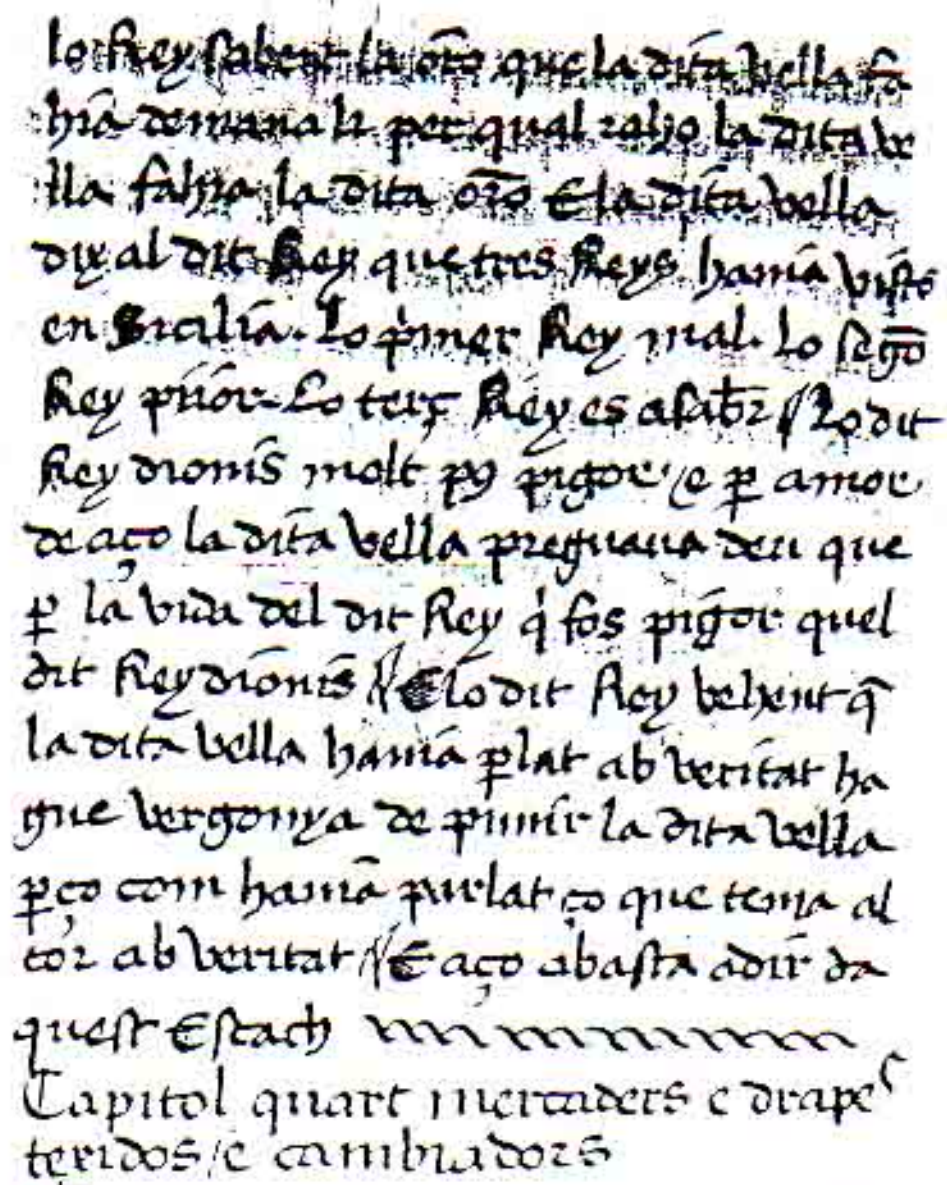 lo Rey sabent la oro que la dita vella fa
hia demanali per qual raho la dita ve
lla fahia la dita oro E la dita vella
dix al dit Rey que tres Reys hauia vists
en Sicilia. Lo primer Rey mal. Lo sego
Rey piior. Lo terç Rey es asabr // Lo dit
Rey dionis molt pus pigor / e per amor
de aço la dita vella preguaua deu que
per la vida del dit Rey qi fos pigor quel
dit Rey dionis // E lo dit Rey vehent q̄
la dita vella hauia perlat ab veritat ha
gue vergonya de punir la dita vella
perço com hauia parlat ço que tenia al
cor ab veritat // E aço abasta a dir da
quest Estach
Capitol quart mercaders e drapers
texidos / e cambiadors